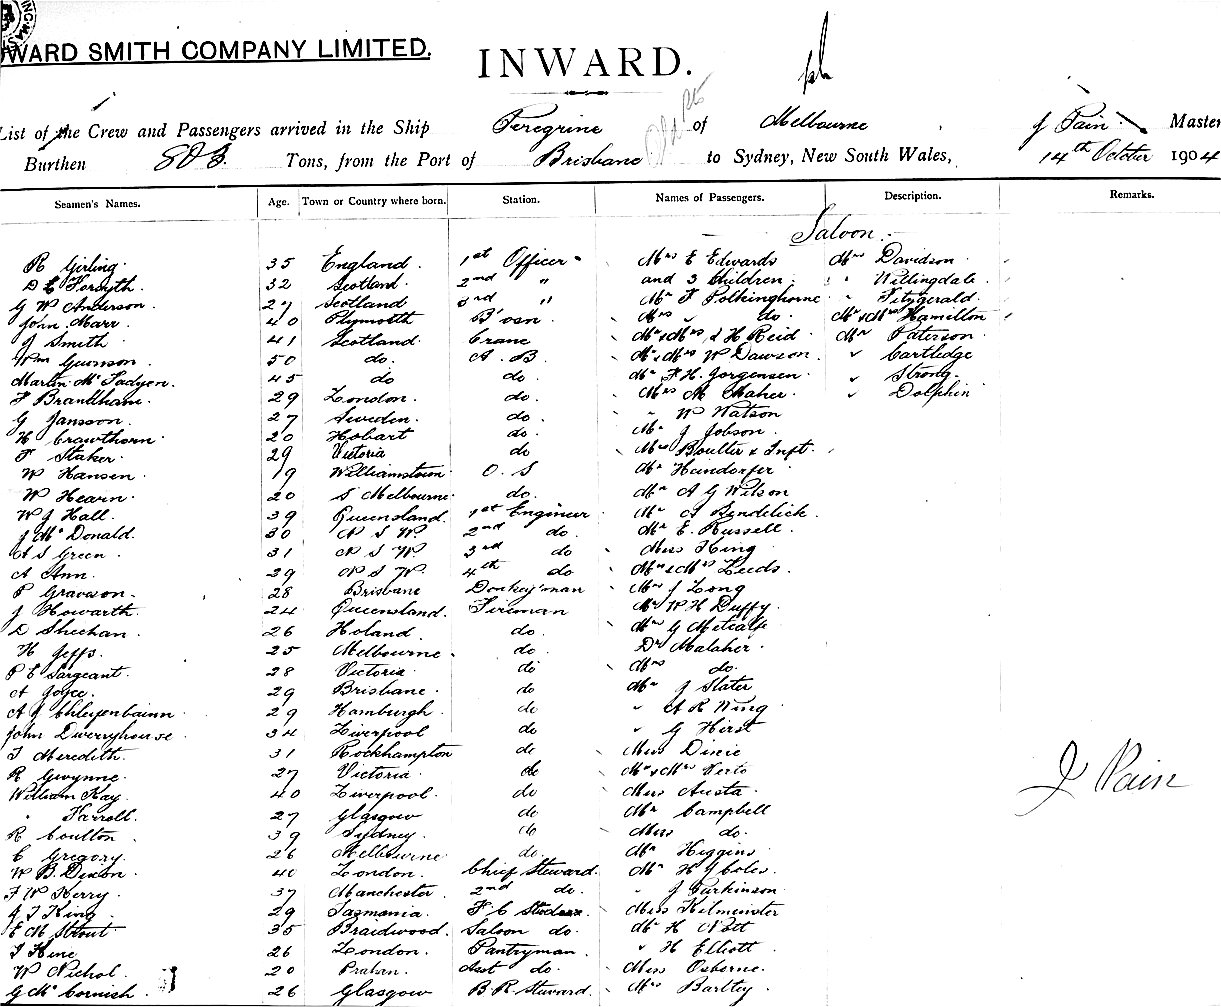 WARD SMITH COMPANY LIMITED.
INWARD.
List of the Crew and Passengers arrived in the Ship Peregrine of Melbourne J Pain Master
Burthen 808 Tons, from the Port of Brisbane to Sydney, New South Wales, 14th October 1904
Seamen's Names. Age. Town or Country where born. Station. Names of Passengers. Description. Remarks.
Saloon
R Girling 35 England 1st Officer Mrs E Edwards Mrs Davidson
D E Forsyth 32 Scotland 2nd " and 3 Children " Willingdale
G W Anderson 27 Scotland 3rd " Mr F Polkinghorne " Fitzgerald
John Marr 40 Plymouth B'osn Mrs " do Mr & Mrs Hamilton
J Smith 41 Scotland Crane Mr & Mrs J H Reid Mr Paterson
Wm Gunnson 50 do. A. B. Mr & Mrs W Dawson " Cartledge
Martin McFadyen 45 do do. Mr F. H. Jorgensen " Strong
F Brandham 29 London do. Mrs M Maher " Dolphin
G Jansson 27 Sweden do. " W Watson
H Crawthorn 20 Hobart do. Mr J Jobson
F Staker 29 Victoria do Mrs Boulter & Inft.
W Hansen 19 Williamstown O. S Mr Heindorfer
W Hearn 20 S Melbourne do. Mr A G Wilson
W J Hall 39 Queensland 1st Engineer Mr A Bendelick
J McDonald 30 N S W. 2nd do. Mr E. Russell
A S Green 31 N S W 3rd do Miss King
A Ann 29 N S W. 4th do Mr & Mrs Leeds
P Grawson 28 Brisbane Donkey'man Mrs J Long
J Howarth 24 Queensland Fireman Mr W H Duffy
D Sheehan 26 Holand do. Mr G Metcalfe
H Jeffs 25 Melbourne do. Dr Malaher
P E Sargeant 28 Victoria do Mrs do.
A Joyce 29 Brisbane do Mr J Slater
A J 29 Hamburgh do " A R Wing
John Diverryhouse 34 Liverpool do " G Hirst
T Meredith 31 Rockhampton do Miss Dixie
R Gwynne 27 Victoria do Mr & Mrs Verto
William Kay 40 Liverpool do Miss Austa
" Farroll 27 Glasgow do Mr Campbell
R Coulton 39 Sydney do Miss do.
C Gregory 26 Melbourne do. Mr Higgins
W B. Dixon 40 London Chief Steward Mr H J Coles
F W Kerry 37 Manchester 2nd do. " J Parkinson
A J King 29 Tasmania F. C Miss Kilminster
E M Strout 35 Braidwood Saloon do. Mr H Nott
T Hine 26 London Pantryman " H Elliott
W Nichol 20 Prahan Asst do. Miss Osborne
G McCornish 26 Glasgow B. R. Steward Mrs Bartley
J Pain